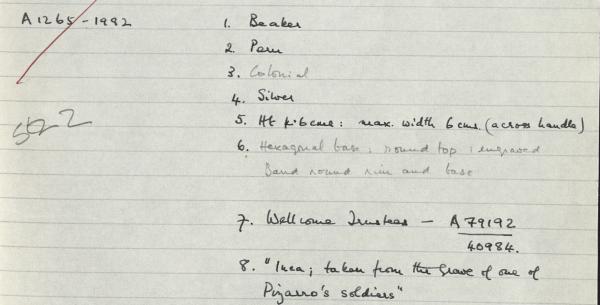 A 1265 - 1982
1. Beaker
2. Peru
3. Colonial
4. Silver
5. Ht 6 cms: max. width 6 cms. (across handle)
522
6. Hexagonal base; round top; engraved
Band round rim and base
7. Wellcome Trustees — A 79192
40984.
8. "Inca; taken from the grave of one of
Pizarro's soldiers"